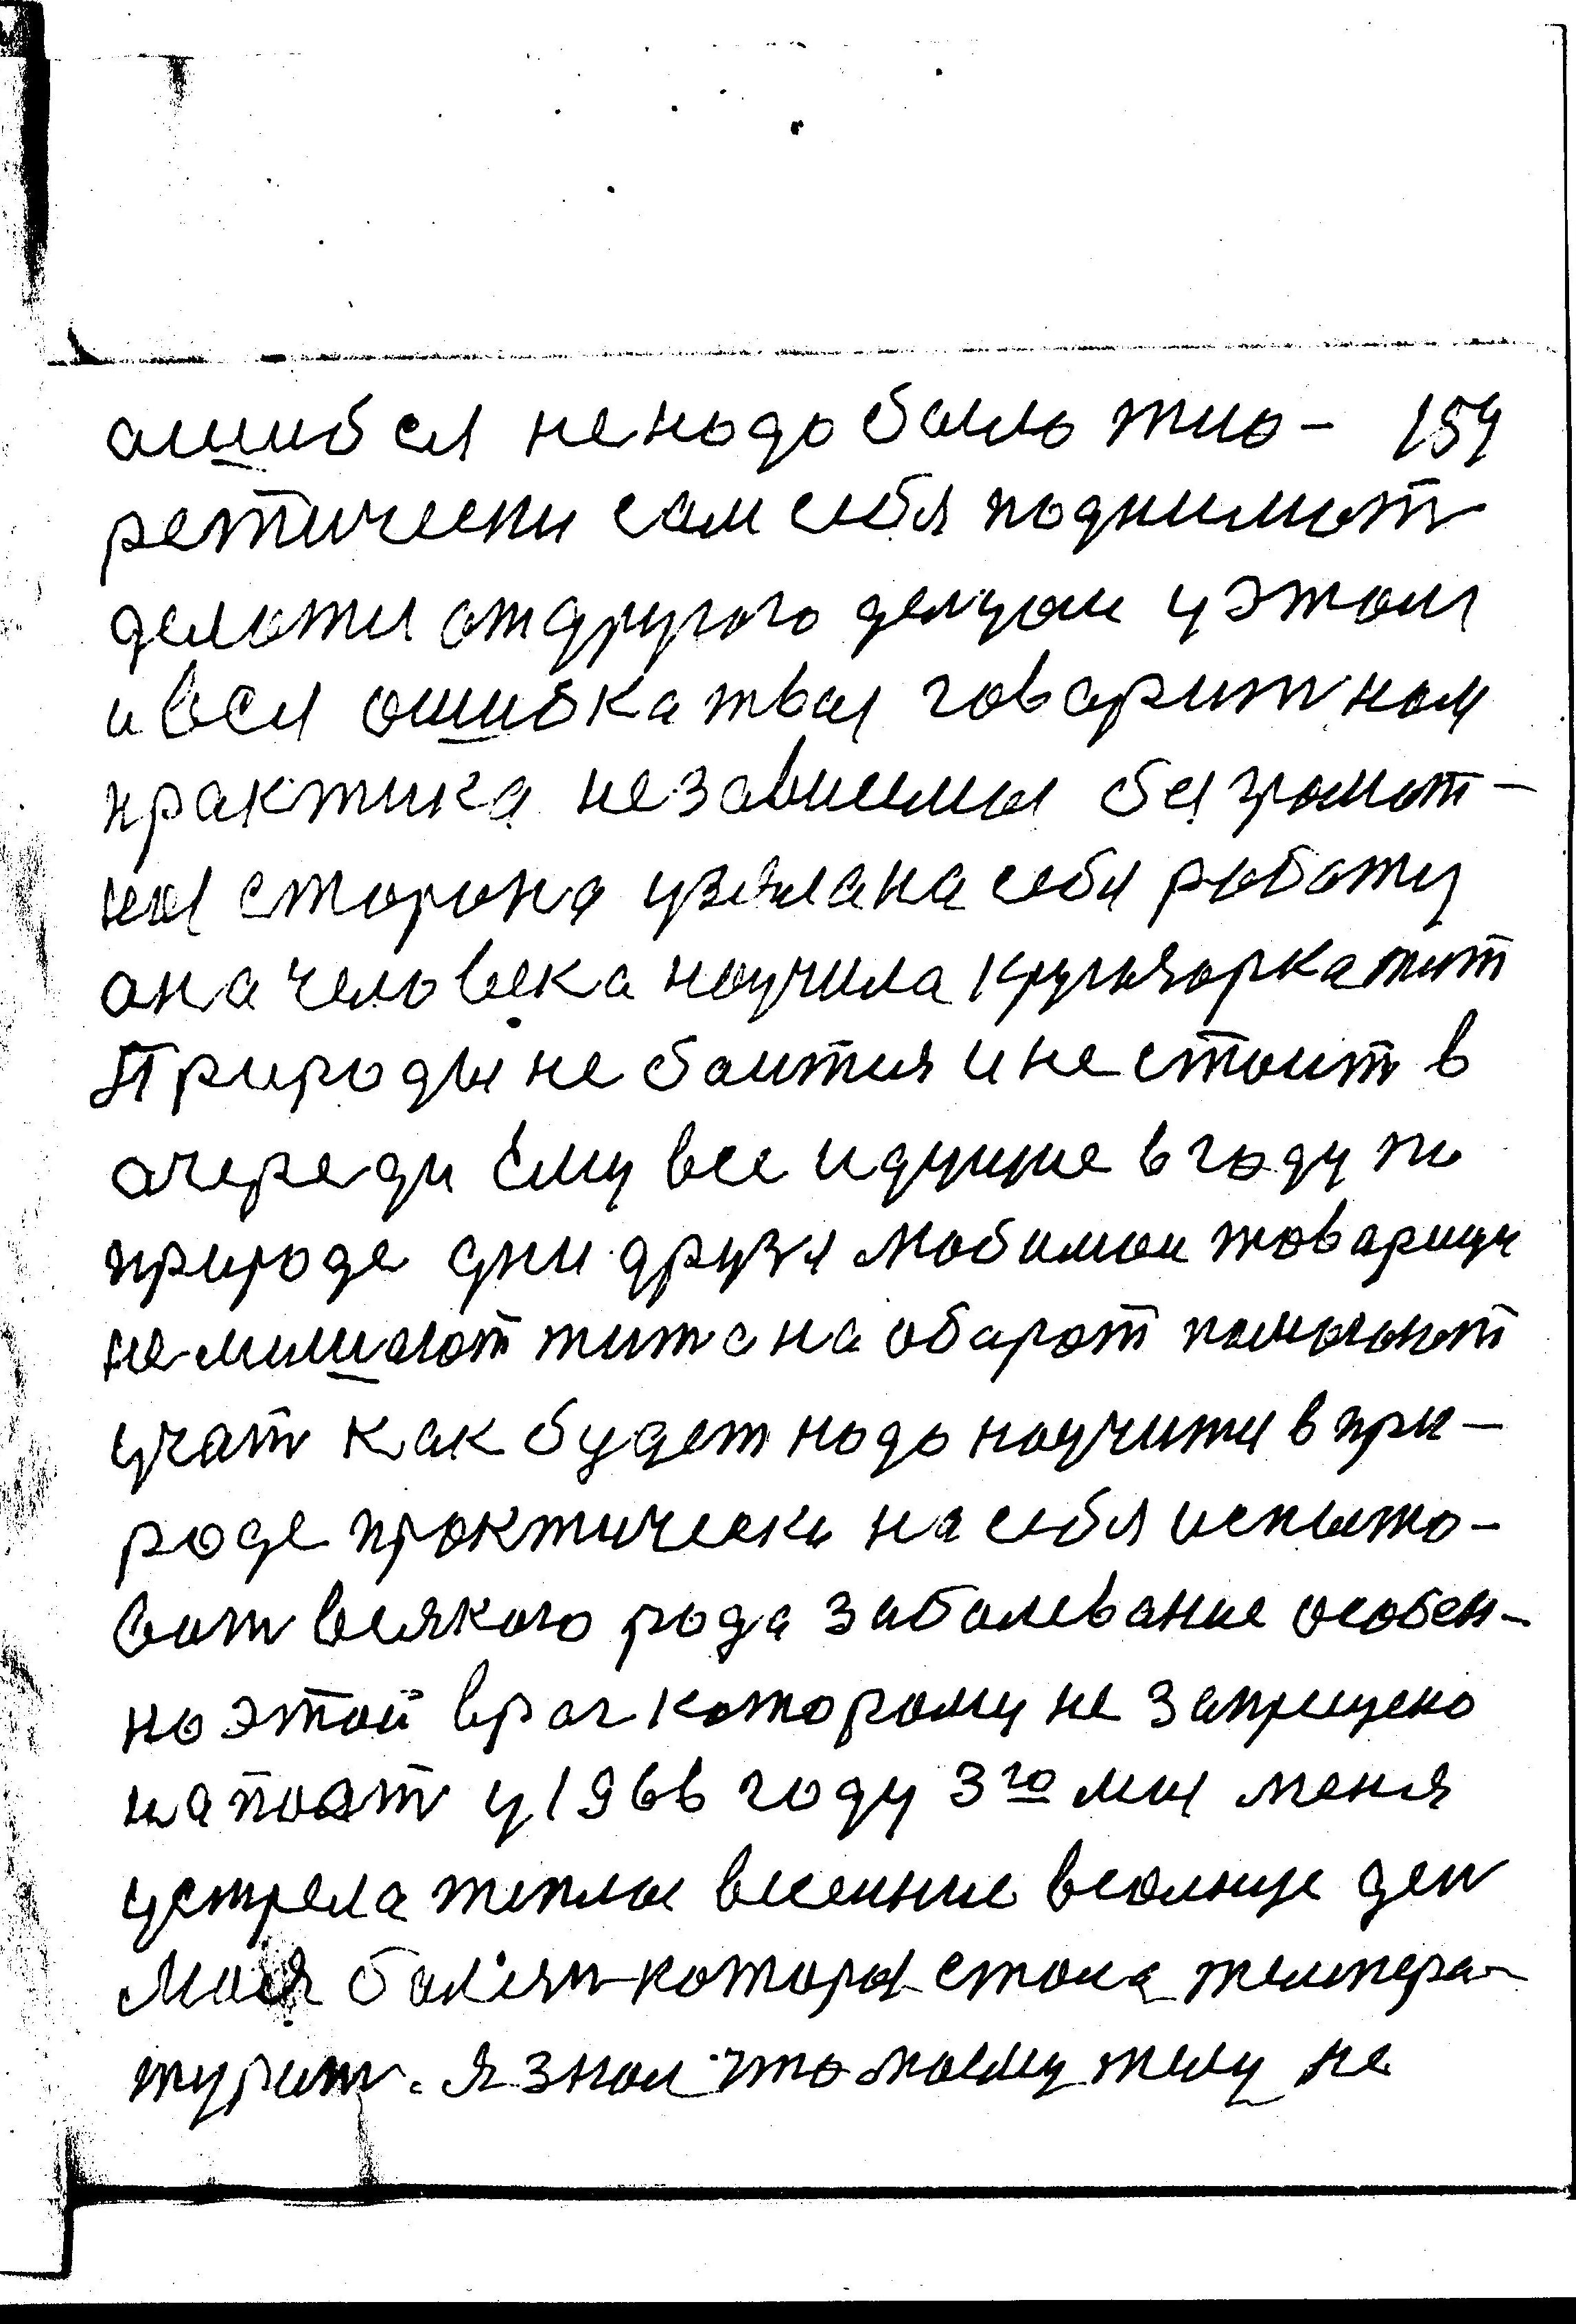 ашибся ненадо было тио- 159
ретически сам себя поднимат
делатця отдругого делцам у этом
и вся ошибка твая говарит нам
практика независимая безграмат-
ная сторона узяла на себя работу
она человека научила круглярка тит
Природы не баитця и не стоит в
очереди ему все идущие в году по
природе дни друзя любимои товарищи
не мишают жит а на обарот помогают
учат как будет надо научитця в при-
роде практически на себя испыто-
ват всякого рода заболевание особен-
но этой враг которому не запрещено
напоат у 1966 году 3го мая меня
устрела теплые весенние всолнце ден
Моея болезн которая стала темпера-
турит. Я знал что моему телу не